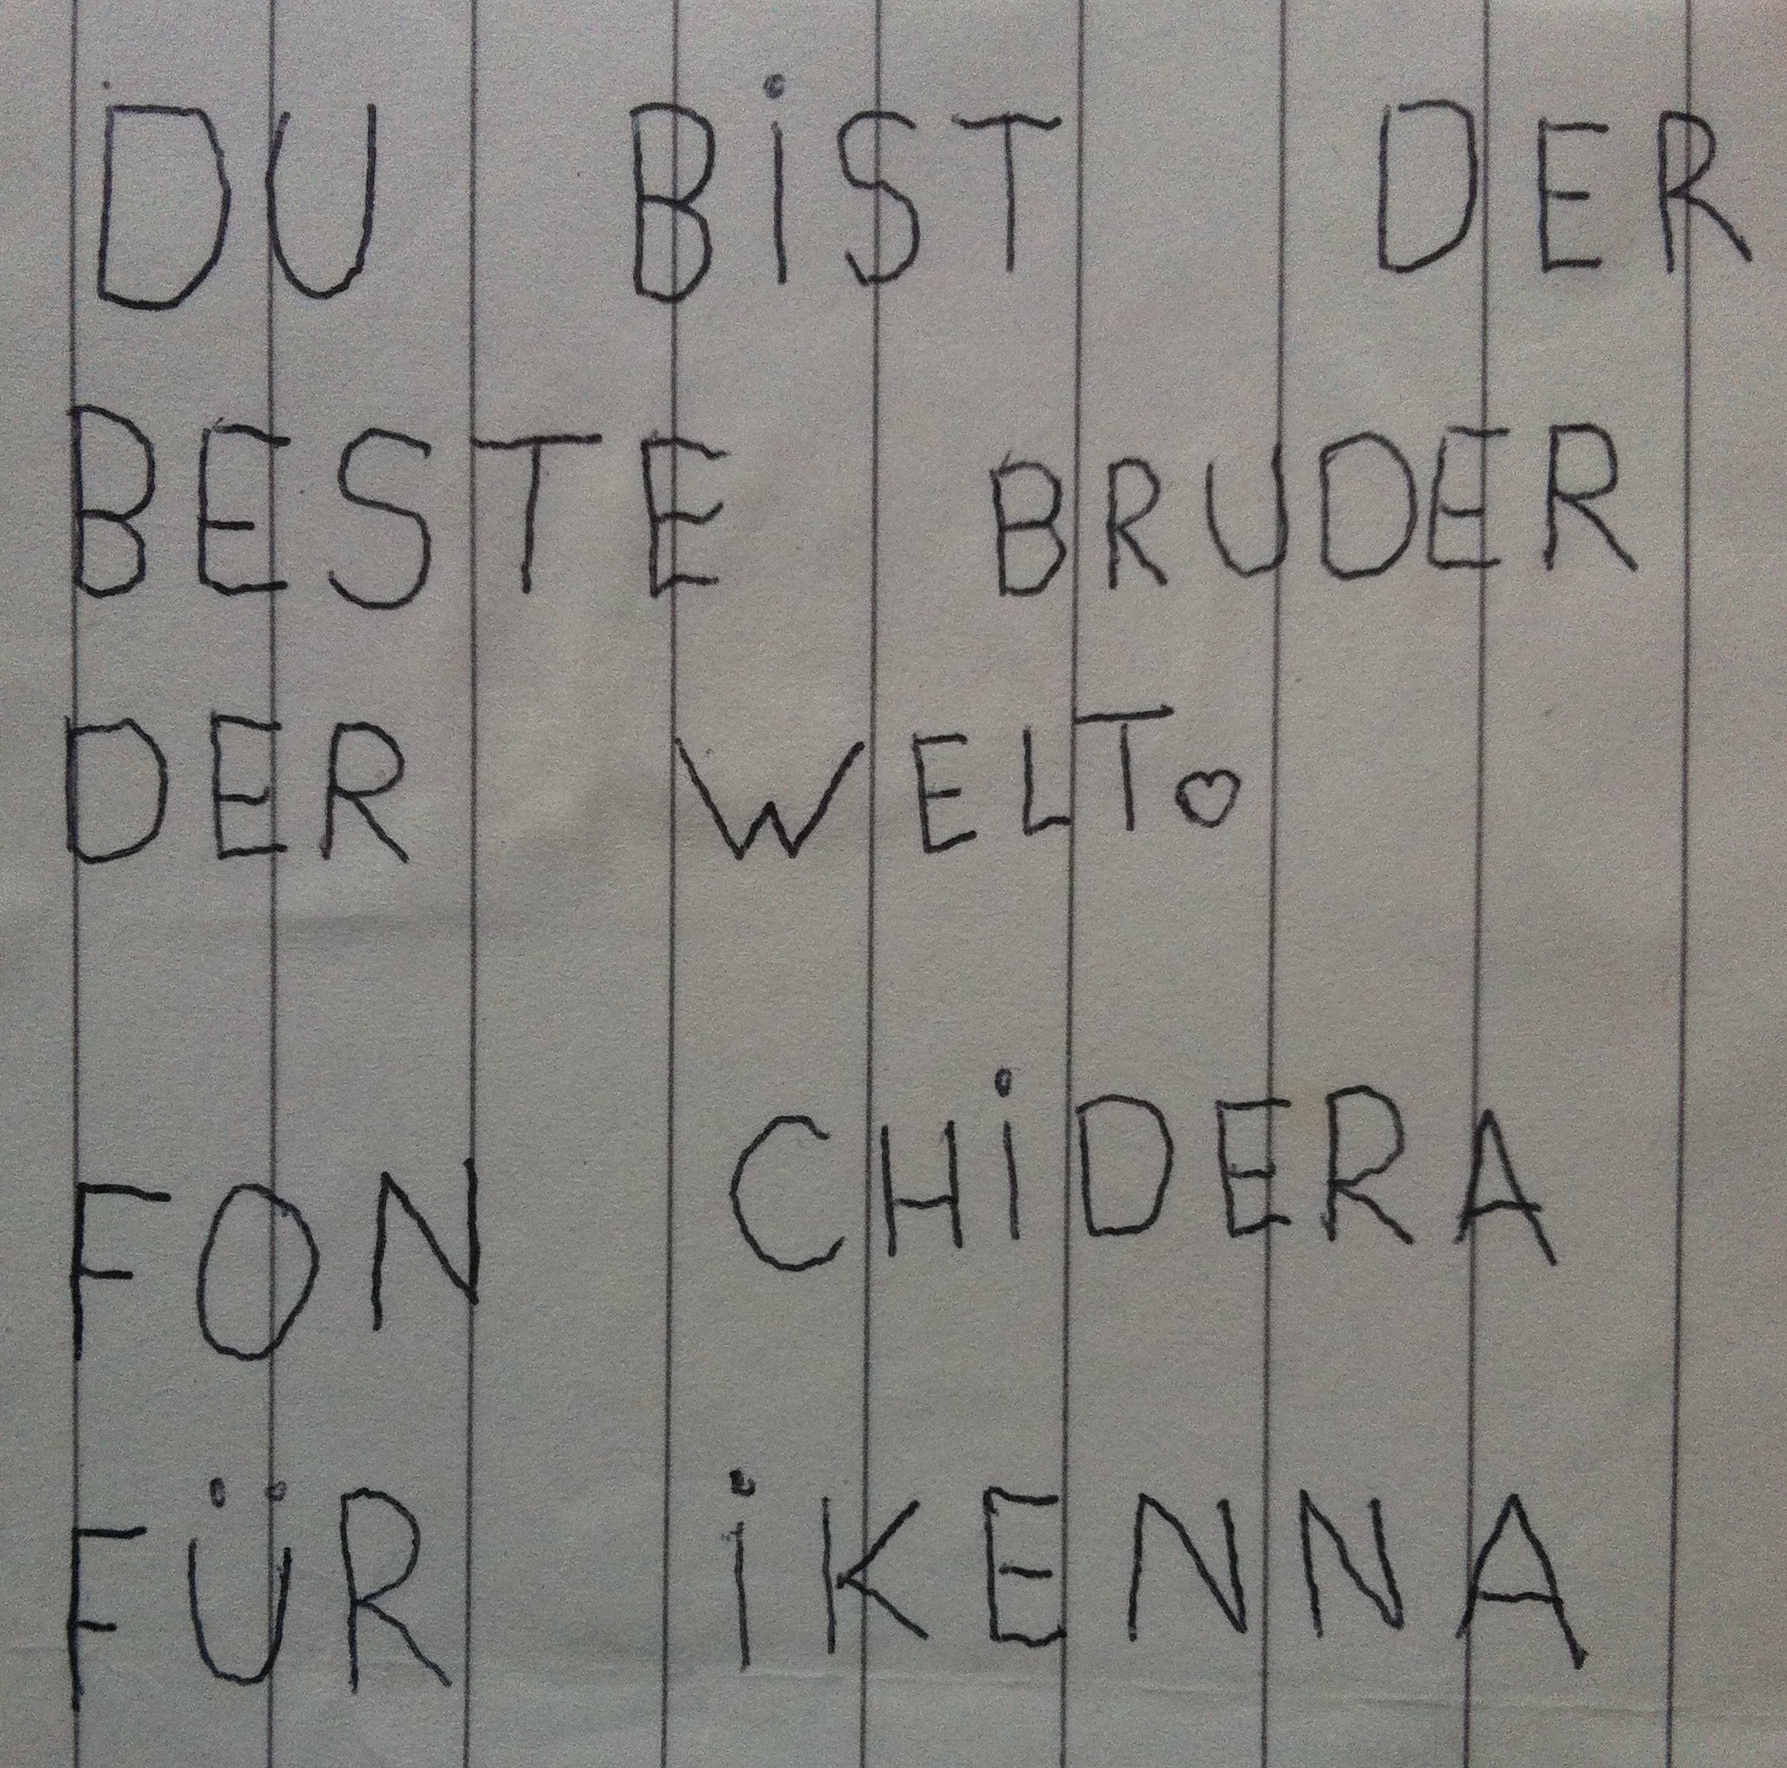 DU BiST DER
BESTE BRUDER
DER WELT♡
FON CHiDERA
FÜR iKENNA